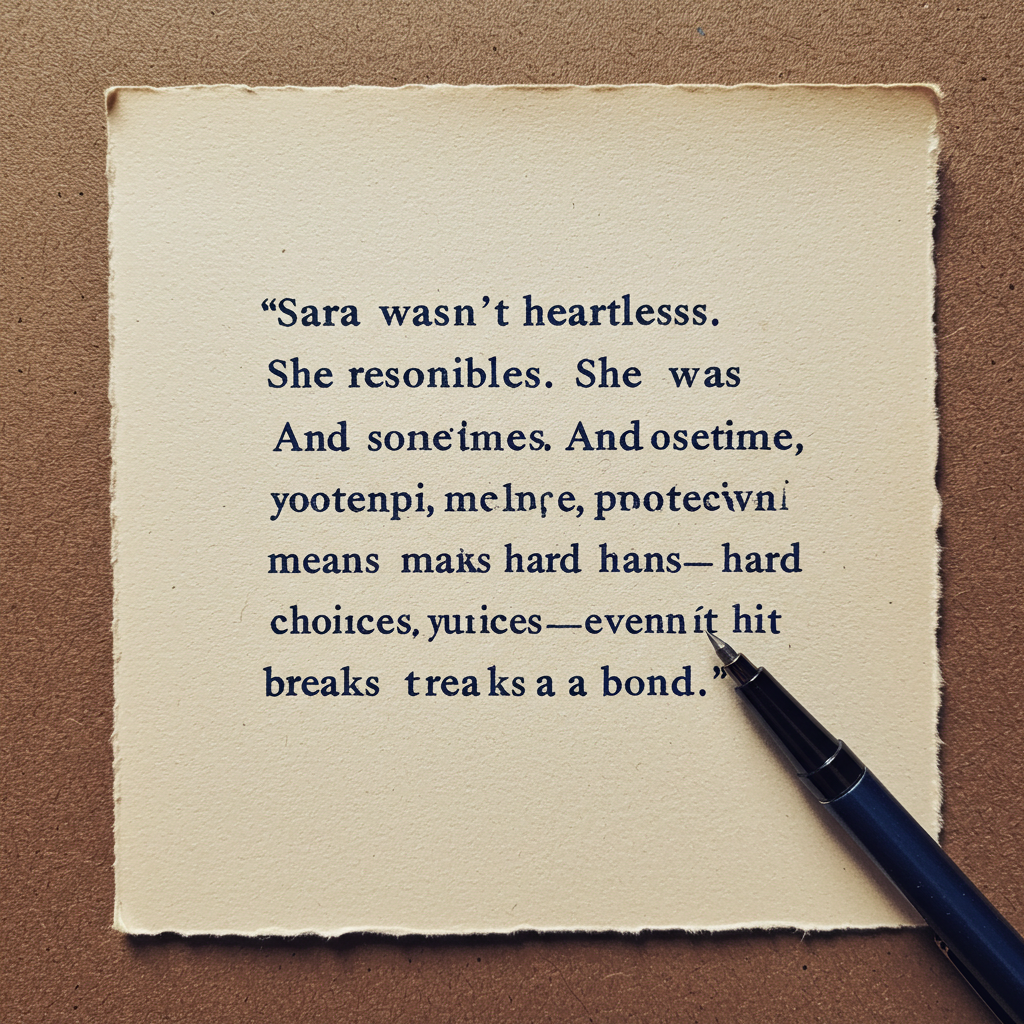 “Sara wasn’t heartlesss.
She resonibles. She was
And sonetimes. And osetime,
yootenpi,
means maks hard hans—hard
choiices, yuiices—evenn ít hit
breaks treaks a a bond.”